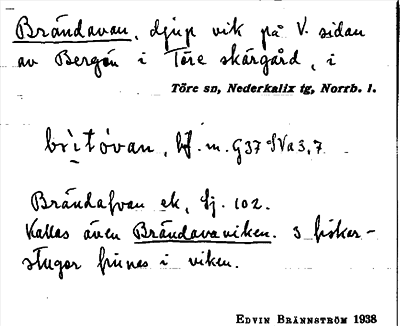 Brändavan, djup vik på V. sidan
av Bergön i Töre skärgård, i
Töre sn, Nederkalix tg, Norrb. l.
brìtóvan, bf. m. G37 SVa3,7
Brändafvan ek, sj. 102.
Kallas även Brändavaviken. 3 fiskar-
stugor finnas i viken.
EDVIN BRÄNNSTRÖM 1938